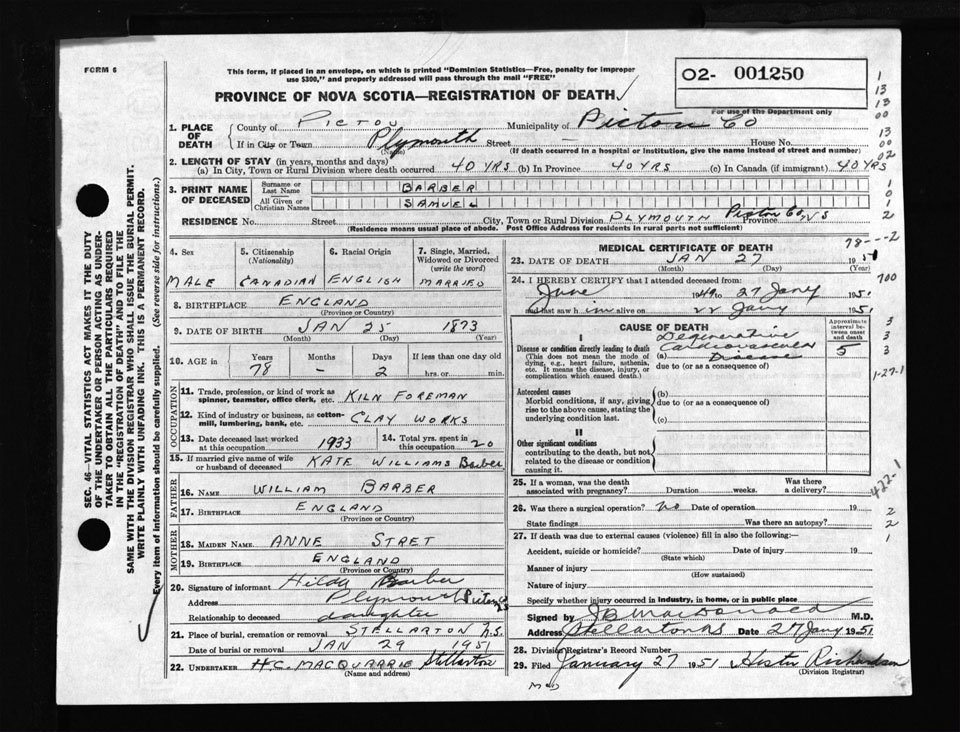 FORM 6
This form, if placed in an envelope, on which is printed "Dominion Statistics—Free, penalty for improper
use $300," and properly addressed will pass through the mail "FREE"
PROVINCE OF NOVA SCOTIA—REGISTRATION OF DEATH
02- 001250
For use of the Department only
1. PLACE OF DEATH County of PICTOU Municipality of Pictou Co
If in City or Town Plymouth Street — House No.
(Name) (If death occurred in a hospital or institution, give the name instead of street and number)
2. LENGTH OF STAY (in years, months and days)
(a) In City, Town or Rural Division where death occurred 40 YRS (b) In Province 40 YRS (c) In Canada (if immigrant) 40 YRS
3. PRINT NAME OF DECEASED Surname or Last Name BARBER
All Given or Christian Names SAMUEL
RESIDENCE No. Street City, Town or Rural Division PLYMOUTH Province Pictou Co, NS
(Residence means usual place of abode. Post Office Address for residents in rural parts not sufficient)
4. Sex 5. Citizenship (Nationality) 6. Racial Origin 7. Single, Married, Widowed or Divorced (write the word)
MALE CANADIAN ENGLISH MARRIED
8. BIRTHPLACE ENGLAND
(Province or Country)
9. DATE OF BIRTH JAN 25 1873
(Month) (Day) (Year)
10. AGE in Years Months Days If less than one day old
78 — 2 hrs. or min.
OCCUPATION
11. Trade, profession, or kind of work as spinner, teamster, office clerk, etc. KILN FOREMAN
12. Kind of industry or business, as cotton-mill, lumbering, bank, etc. CLAY WORKS
13. Date deceased last worked at this occupation 1933 14. Total yrs. spent in this occupation 20
15. If married give name of wife or husband of deceased KATE WILLIAMS Barber
FATHER
16. NAME WILLIAM BARBER
17. BIRTHPLACE ENGLAND
(Province or Country)
MOTHER
18. MAIDEN NAME ANNE STRET
19. BIRTHPLACE ENGLAND
(Province or Country)
20. Signature of informant Hilda Barber
Address Plymouth Pictou Co NS
Relationship to deceased daughter
21. Place of burial, cremation or removal STELLARTON N.S.
Date of burial or removal JAN 29 1951
22. UNDERTAKER H.C. MACQUARRIE Stellarton
(Name and address)
MEDICAL CERTIFICATE OF DEATH
23. DATE OF DEATH JAN 27 1951
(Month) (Day) (Year)
24. I HEREBY CERTIFY that I attended deceased from:
June 1949 to 27 Jany 1951
and last saw him alive on 22 Jany 1951
CAUSE OF DEATH
Approximate interval between onset and death
I
Disease or condition directly leading to death (a) Degenerative Cardiovascular Disease 5
(This does not mean the mode of dying, e.g., heart failure, asthenia, etc. It means the disease, injury, or complication which caused death.)
due to (or as a consequence of)
Antecedent causes (b)
Morbid conditions, if any, giving rise to the above cause, stating the underlying condition last.
due to (or as a consequence of)
(c)
II
Other significant conditions
contributing to the death, but not related to the disease or condition causing it.
25. If a woman, was the death associated with pregnancy? Duration weeks. Was there a delivery?
26. Was there a surgical operation? no Date of operation 19
State findings Was there an autopsy?
27. If death was due to external causes (violence) fill in also the following:—
Accident, suicide or homicide? Date of injury 19
(State which)
Manner of injury
(How sustained)
Nature of injury
Specify whether injury occurred in industry, in home, or in public place
Signed by JB MacDonald M.D.
Address Stellarton NS Date 27 Jany 1951
28. Division Registrar's Record Number
29. Filed January 27 1951 Hester Richardson
(Division Registrar)
SEC. 46—VITAL STATISTICS ACT MAKES IT THE DUTY
OF THE UNDERTAKER OR PERSON ACTING AS UNDER-
TAKER TO OBTAIN ALL THE PARTICULARS REQUIRED
IN THE "REGISTRATION OF DEATH" AND TO FILE THE
SAME WITH THE DIVISION REGISTRAR WHO SHALL ISSUE THE BURIAL PERMIT.
WRITE PLAINLY WITH UNFADING INK. THIS IS A PERMANENT RECORD.
Every item of information should be carefully supplied. (See reverse side for instructions.)
1
13
13
00
13
00
02
1
0
1
2
78---2
700
3
3
3
1-27-1
422-1
2
2
1